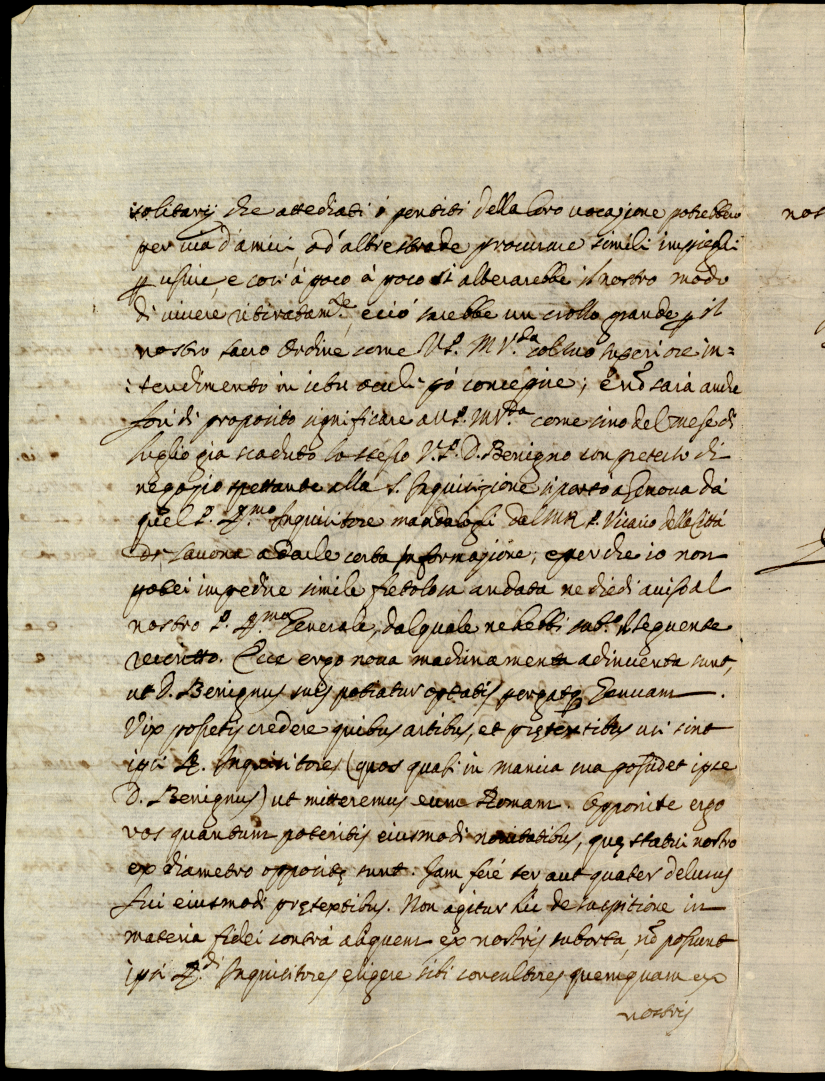 solitarij che attediati ò pentiti della loro vocazione potrebbero
per via d'amici, ò d'altre strade procurare simili impieghi
p uscire, e così à poco à poco si alterarebbe il nostro modo
di vivere ritiratam.te, e ciò sarebbe un crollo grande p il
nostro sacro Ordine come V.P. M.V.da col suo superiore in=
tendimento in ictu oculi può concepire; è nõ sarà anche
fori di proposito significare a V.P. M.V.da come sino del mese di
luglio già scaduto lo stesso V.P. D. Benigno con pretesto di
negozio spettante alla S. Inquisizione si portò a Genova da
quel P. R.mo Inquisitore mandatogli dal M.R. P. Vicario della Città
di Savona a darle certa informazione; e perche io non
potei impedire simile frettolosa andata ne diedi aviso al
nostro P. R.mo Generale, dal quale ne hebbi sub.o il seguente
rescritto. Ecce ergo nova machinamenta adinventa sunt,
ut D. Benignus suis potiatur optatis, pergatq Genuam.
Vix possetis credere quibus artibus, et prętextibus usi sint
ipsi R. Inquisitores (quos quasi in manica sua possidet ipse
D. Benignus) ut mitteremus eum Romam. Opponite ergo
vos quantum poteritis eiusmodi novitatibus, quę statui nostro
ex diametro oppositę sunt. Jam ferè ter aut quater delusus
fui eiusmodi prętextibus. Non agitur hic de suspitione in
materia fidei contrà aliquem ex nostris suborta, nõ possunt
ipsi R.di Inquisitores eligere sibi consultores quemquam ex
nostris
nos